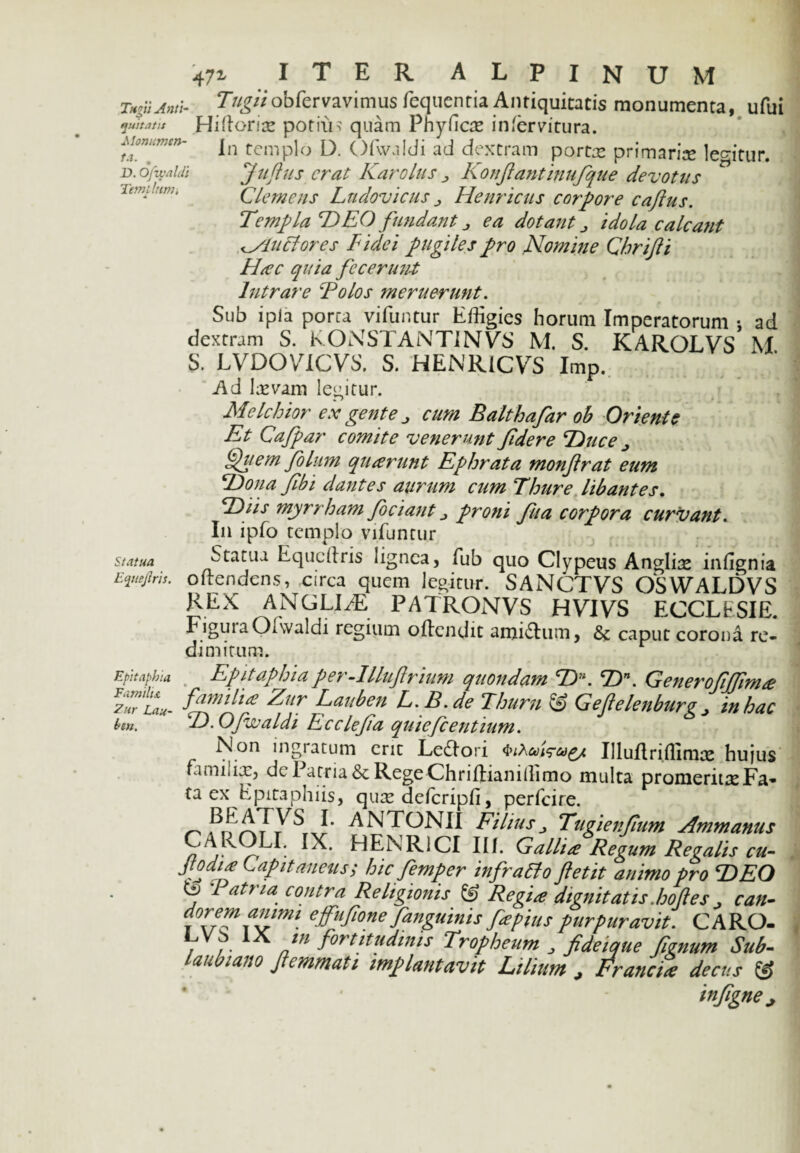 472 ITER ALPINUM
Tugii Anti-
quitatis
Monumen-
ta.
D. Oſwaldi
Templum.
Tugii obſervavimus ſequentia Antiquitatis monumenta, uſui
Hiſtoriæ potius quàm Phyſicæ inſervitura.
In templo D. Oſwaldi ad dextram portæ primariæ legitur.
Juſtus erat Karolus, Konſtantinuſque devotus
Clemens Ludovicus, Henricus corpore caſtus.
Templa DEO fundant, ea dotant, idola calcant
Auctores Fidei pugiles pro Nomine Chriſti
Hæc quia fecerunt
Intrare Polos meruerunt.
Sub ipſa porta viſuntur Effigies horum Imperatorum; ad
dextram S. KONSTANTINVS M. S. KAROLVS M.
S. LVDOVICVS. S. HENRICVS Imp.
Ad lævam legitur.
Melchior ex gente, cum Balthaſar ob Oriente
Et Caſpar comite venerunt ſidere Duce,
Quem ſolum quærunt Ephrata monſtrat eum
Dona ſibi dantes aurum cum Thure libantes.
Diis myrrham ſociant, proni ſua corpora curvant.
In ipſo templo viſuntur
Statua
Equeſtris.
Statua Equeſtris lignea, ſub quo Clypeus Angliæ inſignia
oſtendens, circa quem legitur. SANCTVS OSWALDVS
REX ANGLIÆ PATRONVS HVIVS ECCLESIE.
Figura Oſwaldi regium oſtendit amictum, & caput coronâ re-
dimitum.
Epitaphia
Familiæ
Zur Lau-
ben.
Epitaphia per-Illuſtrium quondam Dⁿ. Dⁿ. Generoſiſſimæ
familiæ Zur Lauben L. B. de Thurn & Geſtelenburg, in hac
D. Oſwaldi Eccleſia quieſcentium.
Non ingratum erit Lectori Φιλωϊϛωρι Illuſtriſſimæ hujus
familiæ, de Patria & Rege Chriſtianiſſimo multa promeritæ Fa-
ta ex Epitaphiis, quæ deſcripſi, perſcire.
BEATVS I. ANTONII Filius, Tugienſium Ammanus
CAROLI. IX. HENRICI III. Galliæ Regum Regalis cu-
ſtodiæ Capitaneus; hic ſemper infracto ſtetit animo pro DEO
& Patria contra Religionis & Regiæ dignitatis hoſtes, can-
dorem animi effuſione ſanguinis ſæpius purpuravit. CARO-
LVS IX in fortitudinis Tropheum, fideique ſignum Sub-
laubiano ſtemmati implantavit Lilium, Franciæ decus &
inſigne,